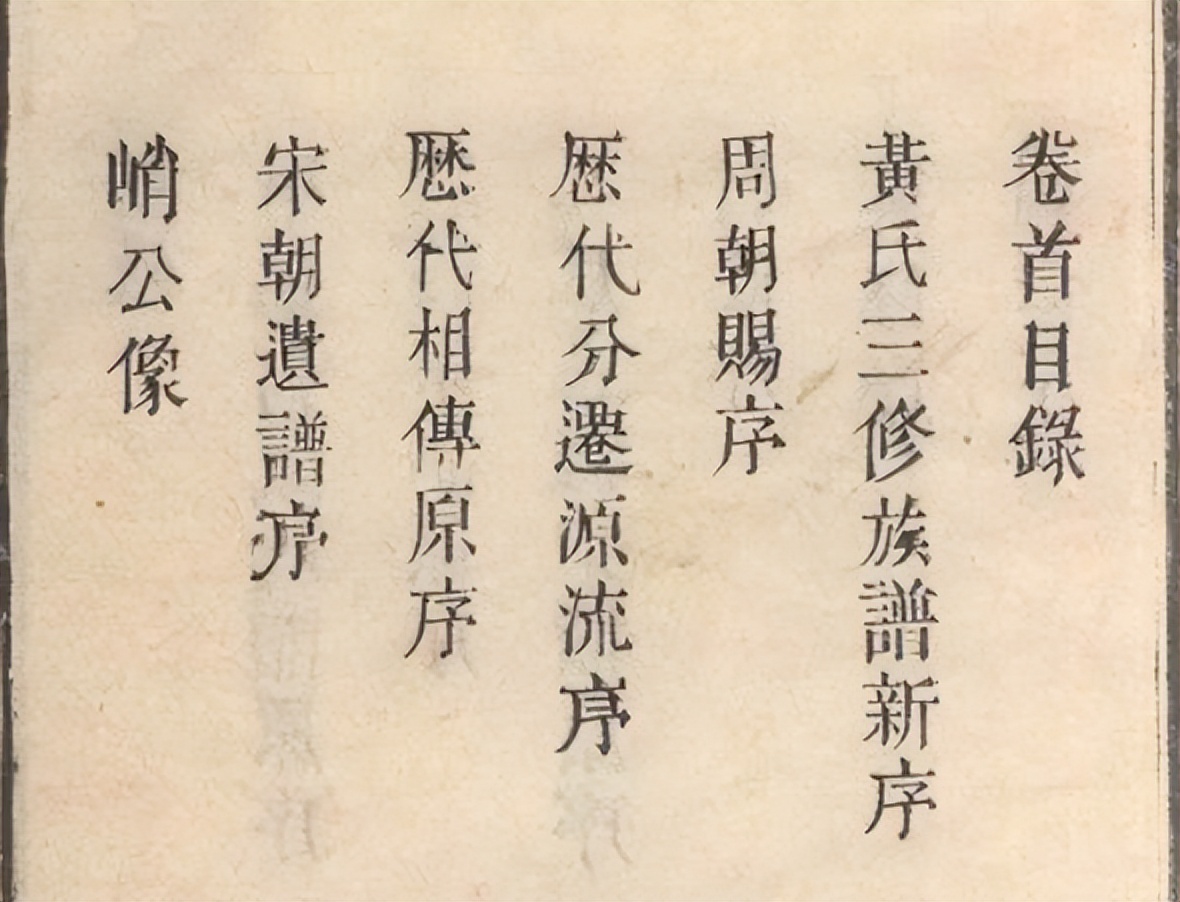 卷首目錄
黃氏三修族譜新序
周朝賜序
歷代分遷源流序
歷代相傳原序
宋朝遺譜序
峭公像